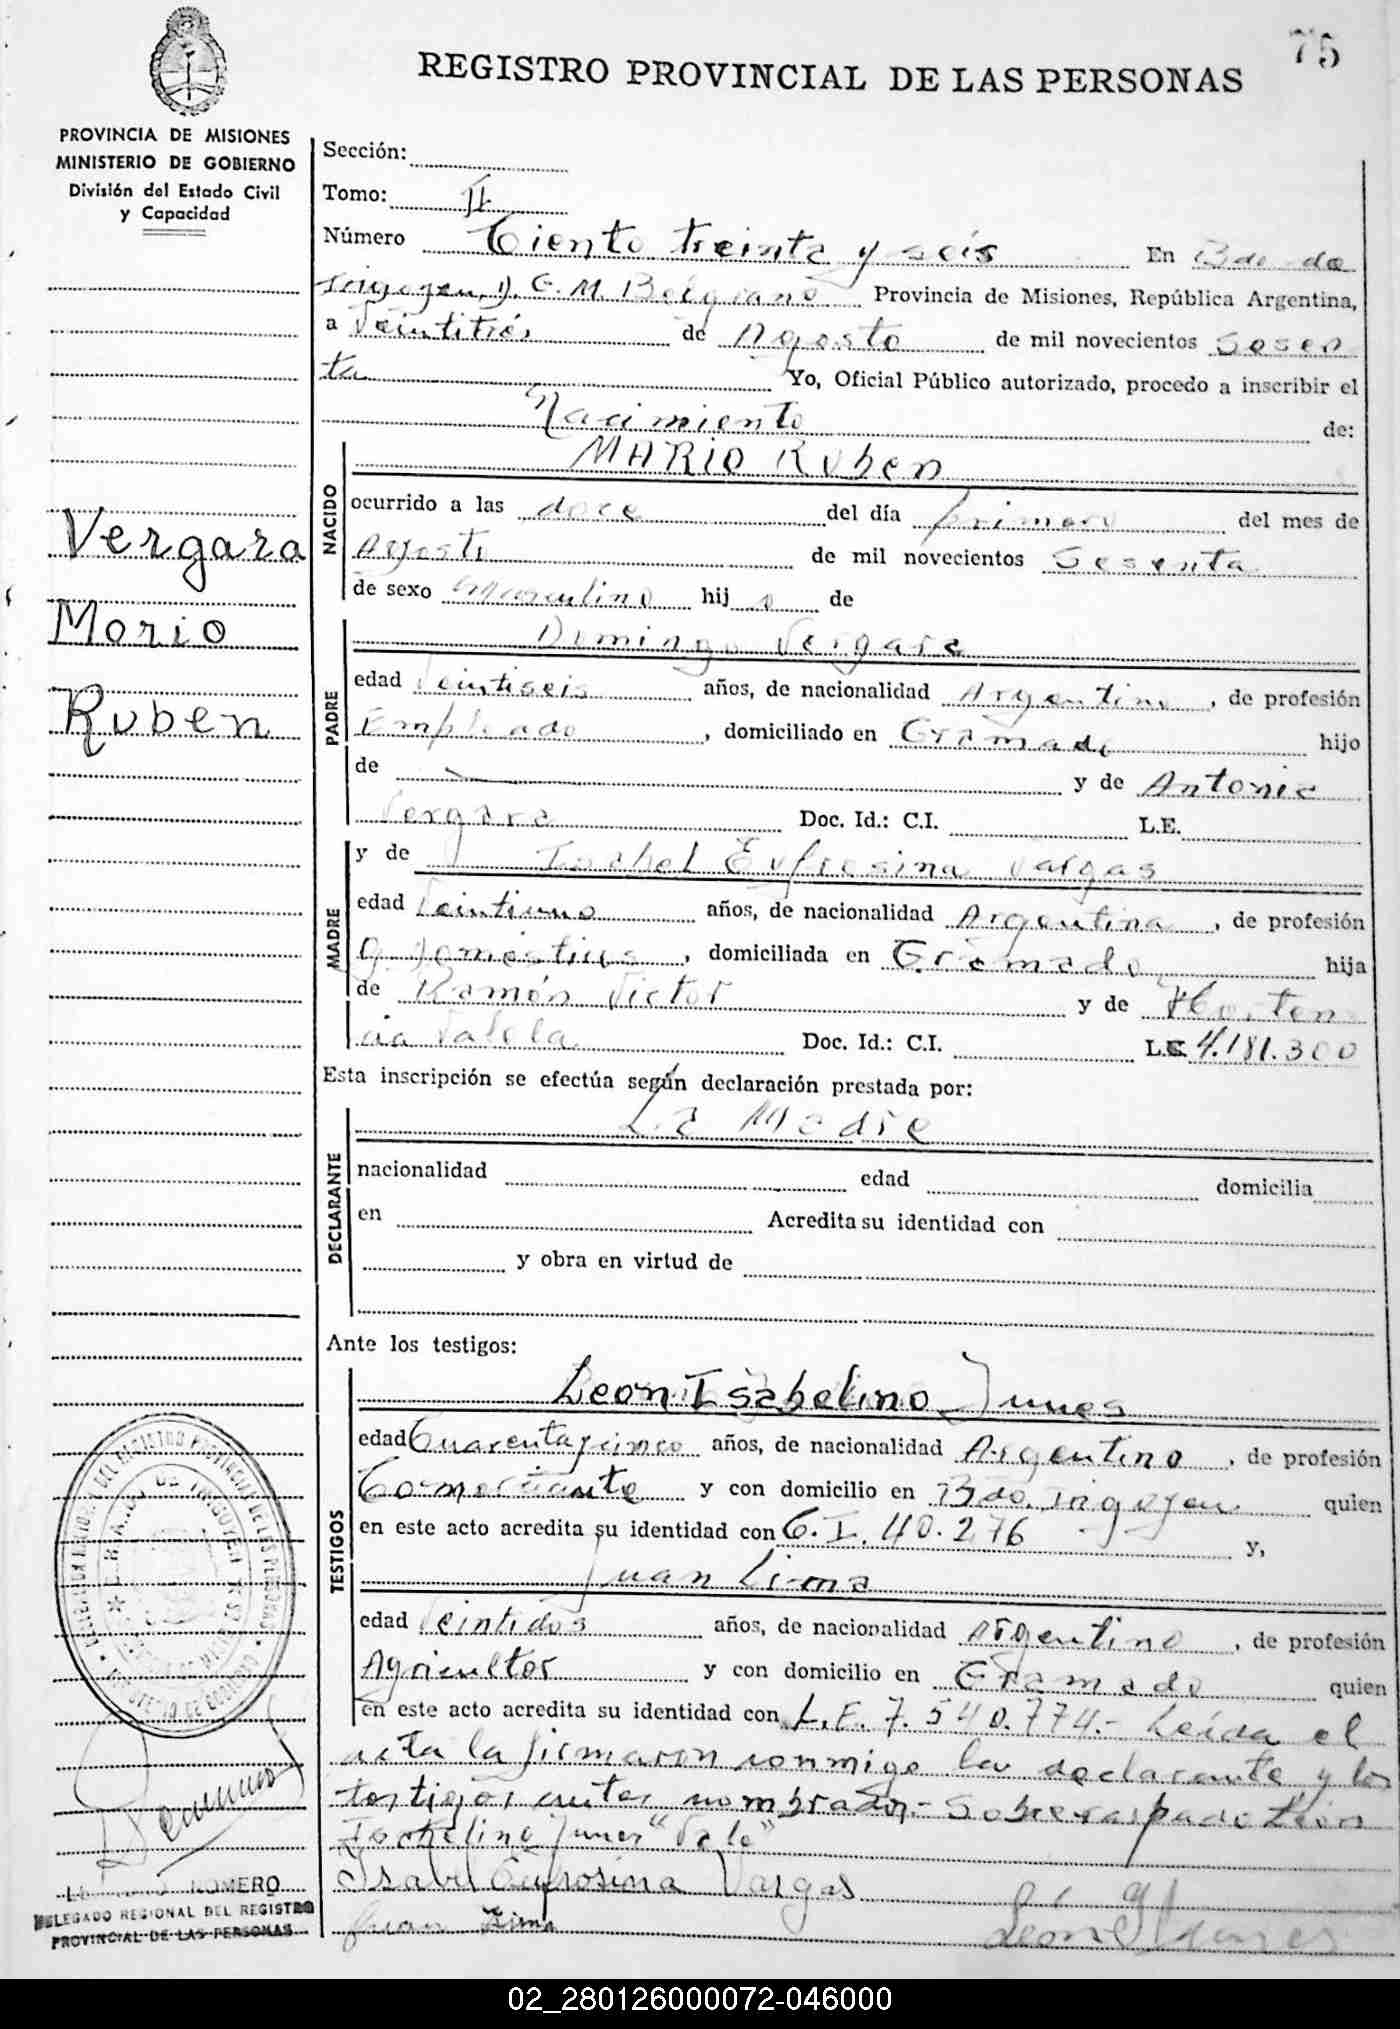 75
REGISTRO PROVINCIAL DE LAS PERSONAS
PROVINCIA DE MISIONES
MINISTERIO DE GOBIERNO
División del Estado Civil
y Capacidad
Vergara
Mario
Ruben
Sección:
Tomo: II
Número Ciento treinta y seis En Bdo. de
Irigoyen, D. G. M. Belgrano Provincia de Misiones, República Argentina,
a Veintitrés de Agosto de mil novecientos Sesen
ta Yo, Oficial Público autorizado, procedo a inscribir el
Nacimiento de:
NACIDO
MARIO Ruben
ocurrido a las doce del día primero del mes de
Agosto de mil novecientos Sesenta
de sexo Masculino hijo de
PADRE
Domingo Vergara
edad Veintiseis años, de nacionalidad Argentino, de profesión
Empleado, domiciliado en Gramado hijo
de y de Antonia
Vergara Doc. Id.: C.I. L.E.
MADRE
y de Isabel Eufrosina Vargas
edad Veintiuno años, de nacionalidad Argentina, de profesión
Q. Domésticos, domiciliada en Gramado hija
de Ramón Victor y de Horten
cia Varela Doc. Id.: C.I. L.C. 4.181.300
Esta inscripción se efectúa según declaración prestada por:
DECLARANTE
La Madre
nacionalidad edad domicilia
en Acredita su identidad con
y obra en virtud de
Ante los testigos:
TESTIGOS
Leon Isabelino Junes
edad Cuarenta y cinco años, de nacionalidad Argentino, de profesión
Comerciante y con domicilio en Bdo. Irigoyen quien
en este acto acredita su identidad con C. I. 40.276 y,
Juan Lima
edad Veintidos años, de nacionalidad Argentino, de profesión
Agricultor y con domicilio en Gramado quien
en este acto acredita su identidad con L.E. 7.540.774.- Leída el
acta la firmaron conmigo la declarante y los
testigos antes nombrados.- Sobreraspado León
Isabelino Junes "Vale"
Isabel Eufrosina Vargas
Juan Lima
ROMERO
DELEGADO REGIONAL DEL REGISTRO
PROVINCIAL DE LAS PERSONAS
02_280126000072-046000